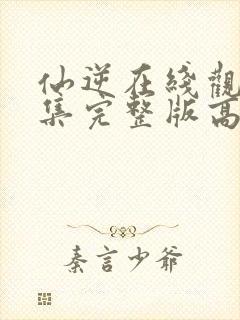 仙逆在綫觀
集完整版高
秦言少爺